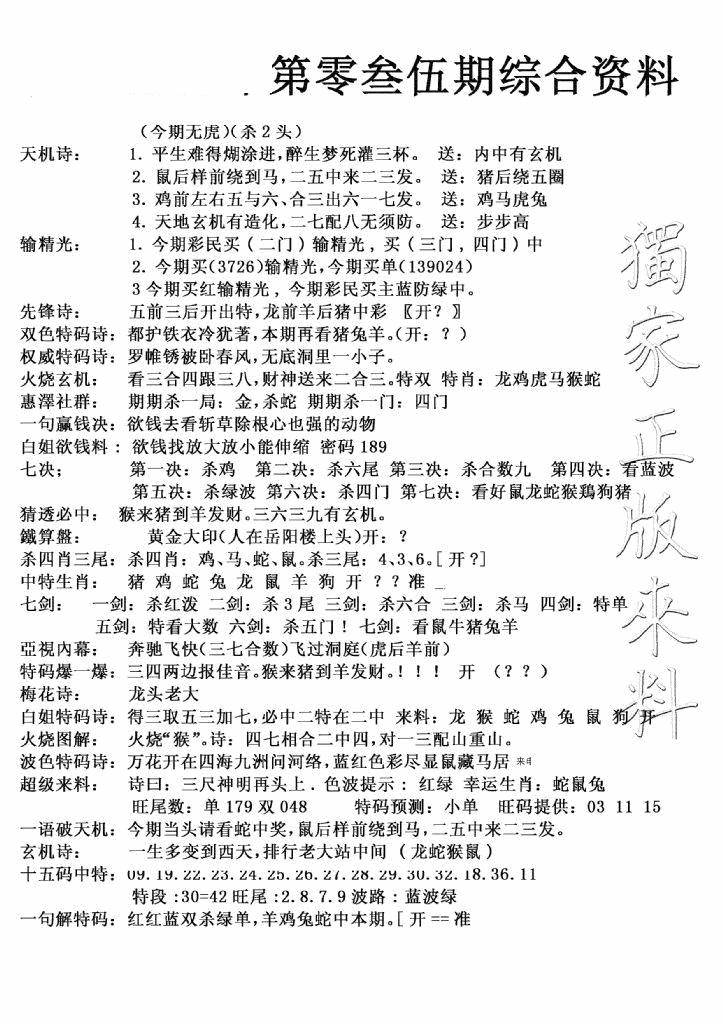 第零叁伍期综合资料
(今期无虎)(杀2头)
天机诗: 1. 平生难得煳涂进,醉生梦死灌三杯。 送: 内中有玄机
2. 鼠后样前绕到马,二五中来二三发。 送: 猪后绕五圈
3. 鸡前左右五与六、合三出六一七发。 送: 鸡马虎兔
4. 天地玄机有造化,二七配八无须防。 送: 步步高
输精光: 1. 今期彩民买(二门)输精光, 买(三门, 四门)中
2. 今期买(3726)输精光,今期买单(139024)
3今期买红输精光, 今期彩民买主蓝防绿中。
先锋诗: 五前三后开出特,龙前羊后猪中彩 〖开?〗
双色特码诗: 都护铁衣冷犹著,本期再看猪兔羊。(开: ?)
权威特码诗: 罗帷锈被卧春风,无底洞里一小子。
火烧玄机: 看三合四跟三八,财神送来二合三。特双 特肖: 龙鸡虎马猴蛇
惠澤社群: 期期杀一局: 金,杀蛇 期期杀一门: 四门
一句赢钱决: 欲钱去看斩草除根心也强的动物
白姐欲钱料: 欲钱找放大放小能伸缩 密码189
七决; 第一决: 杀鸡 第二决: 杀六尾 第三决: 杀合数九 第四决: 看蓝波
第五决: 杀绿波 第六决: 杀四门 第七决: 看好鼠龙蛇猴鶏狗猪
猜透必中: 猴来猪到羊发财。三六三九有玄机。
鐵算盤: 黄金大印(人在岳阳楼上头)开: ?
杀四肖三尾: 杀四肖: 鸡、马、蛇、鼠。杀三尾: 4、3、6。[开?]
中特生肖: 猪 鸡 蛇 兔 龙 鼠 羊 狗 开 ? ?准
七剑: 一剑: 杀红泼 二剑: 杀3尾 三剑: 杀六合 三剑: 杀马 四剑: 特单
五剑: 特看大数 六剑: 杀五门! 七剑: 看鼠牛猪兔羊
亞視内幕: 奔驰飞快(三七合数)飞过洞庭(虎后羊前)
特码爆一爆: 三四两边报佳音。猴来猪到羊发财。! ! ! 开 (? ?)
梅花诗: 龙头老大
白姐特码诗: 得三取五三加七,必中二特在二中 来料: 龙 猴 蛇 鸡 兔 鼠 狗 开
火烧图解: 火烧“猴”。诗: 四七相合二中四,对一三配山重山。
波色特码诗: 万花开在四海九洲问河络,蓝红色彩尽显鼠藏马居
超级来料: 诗曰: 三尺神明再头上. 色波提示: 红绿 幸运生肖: 蛇鼠兔
旺尾数: 单179双048 特码预测: 小单 旺码提供: 03 11 15
一语破天机: 今期当头请看蛇中奖,鼠后样前绕到马,二五中来二三发。
玄机诗: 一生多变到西天,排行老大站中间 (龙蛇猴鼠)
十五码中特: 09.19.22.23.24.25.26.27.28.29.30.32.18.36.11
特段:30=42旺尾:2.8.7.9波路: 蓝波绿
一句解特码: 红红蓝双杀绿单,羊鸡兔蛇中本期。[开==准
獨家正版來料